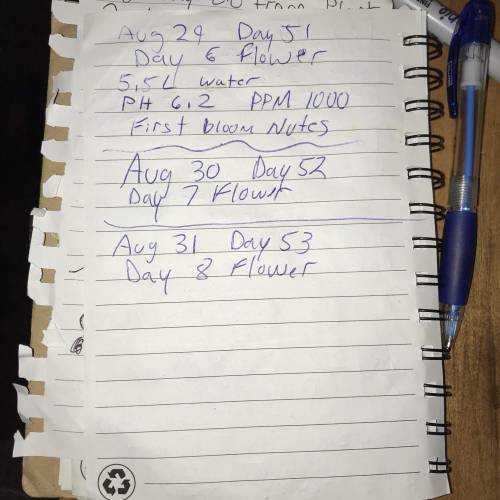 from Plant
Aug 29 Day 51
Day 6 flower
5,5L water
PH 6.2 PPM 1000
First bloom Nutes
Aug 30 Day 52
Day 7 Flower
Aug 31 Day 53
Day 8 Flower